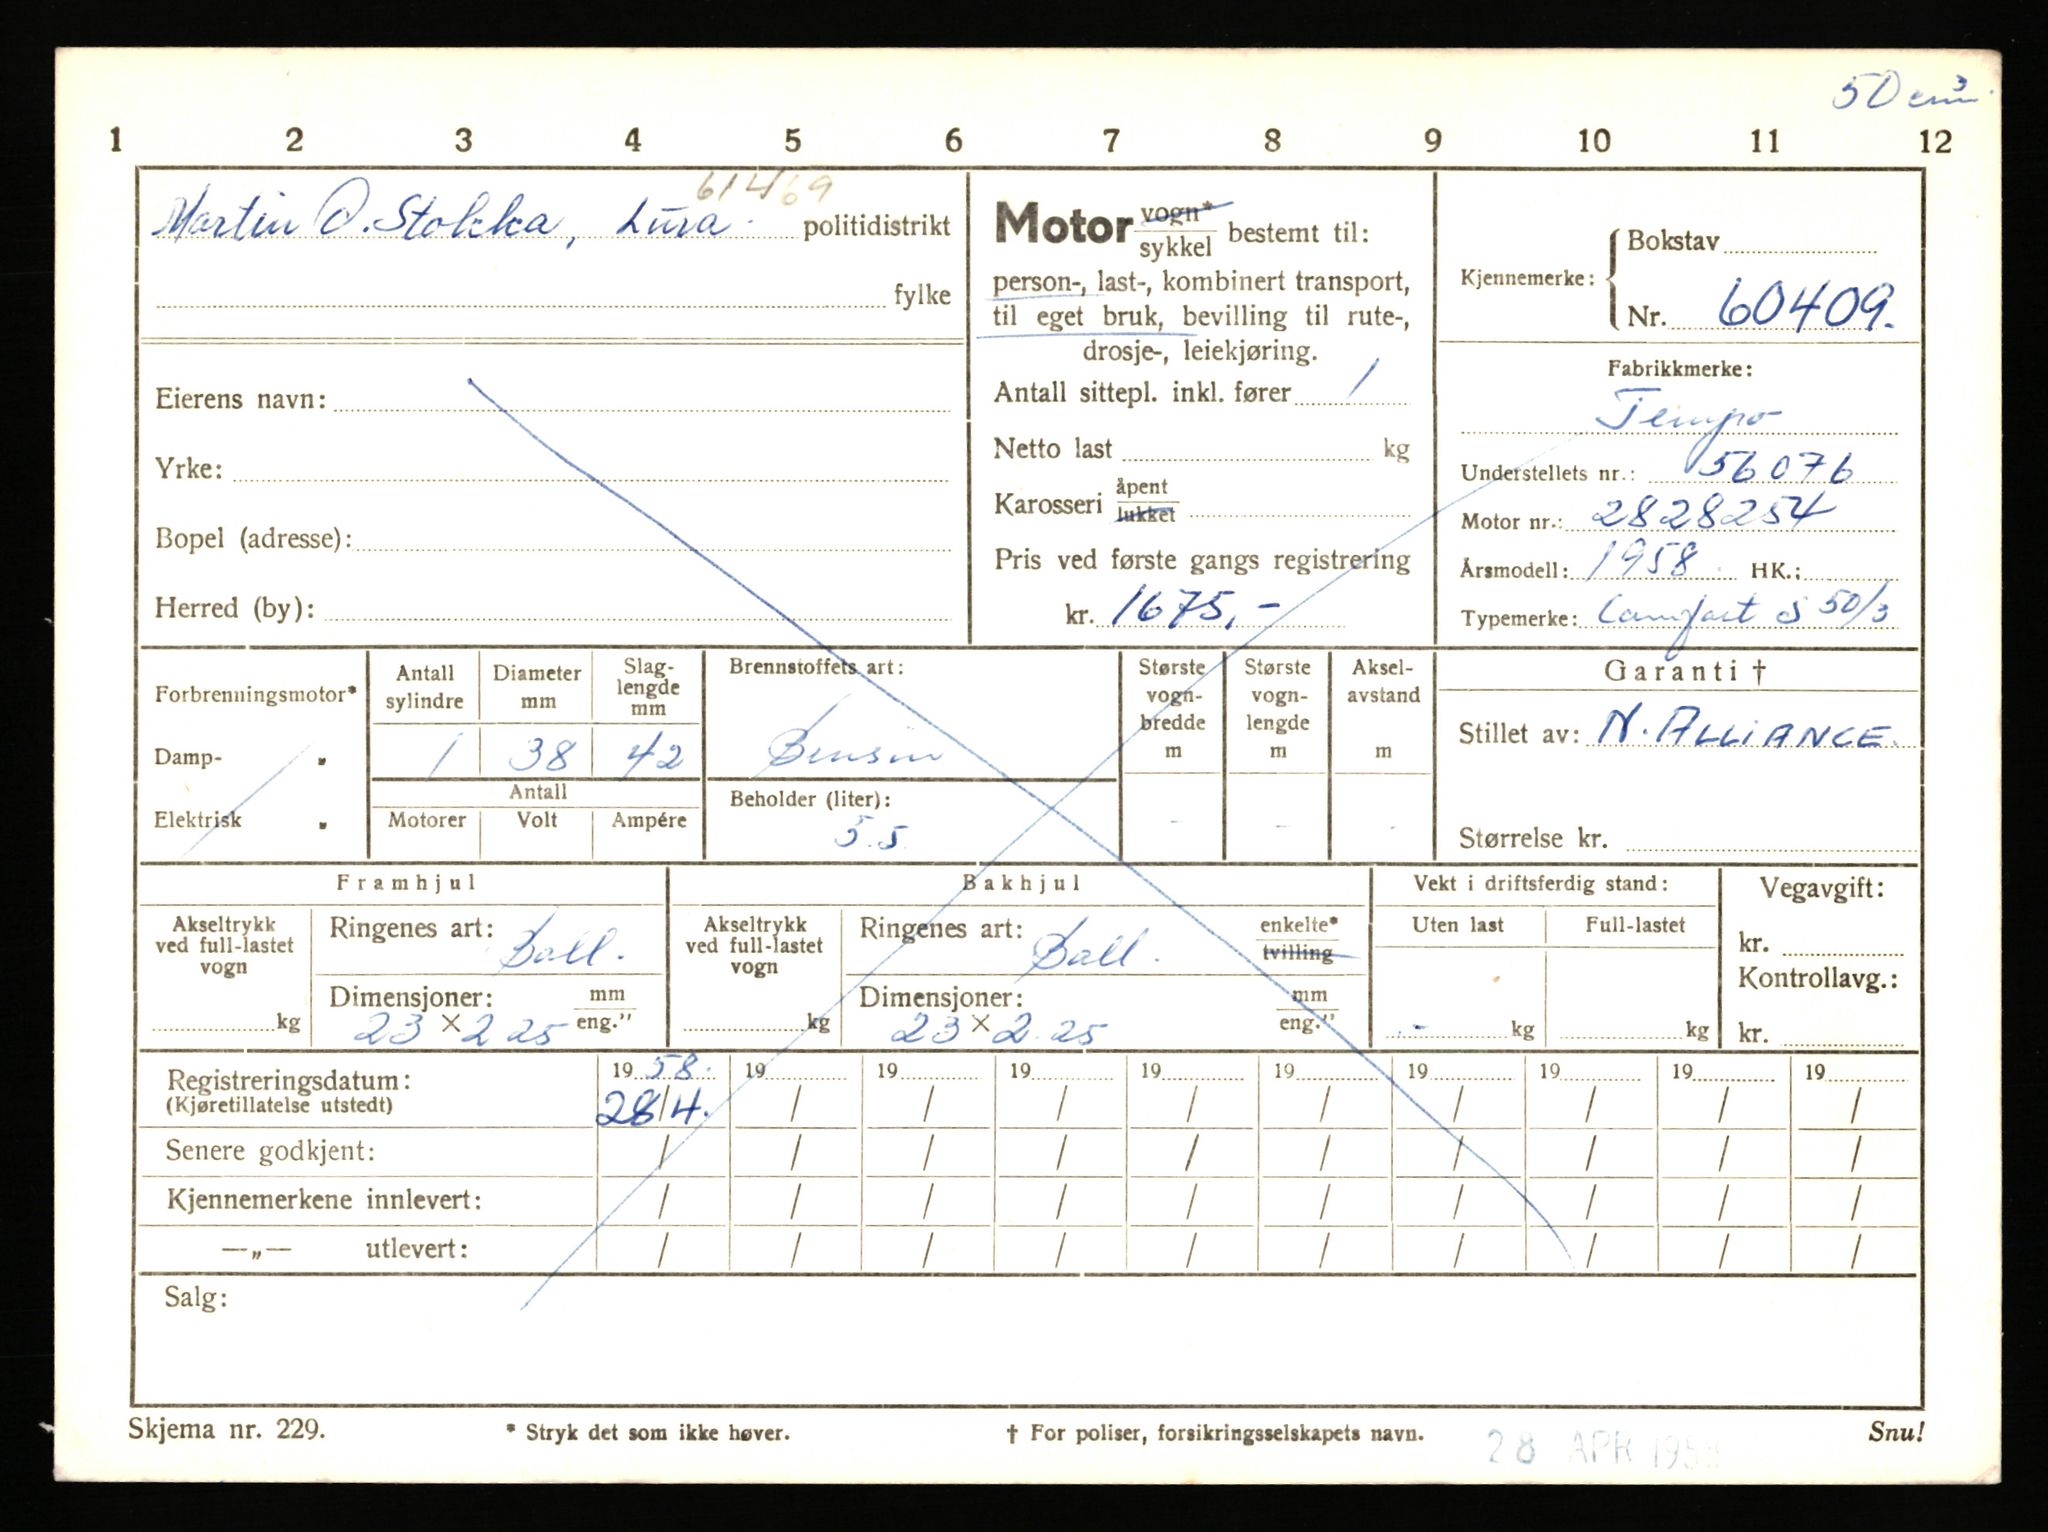 50 cm³.
1 2 3 4 5 6 7 8 9 10 11 12
61469
Martin O. Stokka, Lura. politidistrikt
fylke
Eierens navn:
Yrke:
Bopel (adresse):
Herred (by):
Motor vogn* sykkel bestemt til:
person-, last-, kombinert transport,
til eget bruk, bevilling til rute-,
drosje-, leiekjøring.
Antall sittepl. inkl. fører 1
Netto last kg
Karosseri åpent lukket
Pris ved første gangs registrering
kr. 1675,-
Kjennemerke: Bokstav
Nr. 60409.
Fabrikkmerke:
Tempo
Understellets nr.: 56076
Motor nr.: 2828254
Årsmodell: 1958. HK.:
Typemerke: Comfort S 50/3
Forbrenningsmotor*
Damp- „
Elektrisk „
Antall sylindre
Diameter mm
Slag-
lengde
mm
1 38 42
Antall
Motorer Volt Ampére
Brennstoffets art:
Bensin
Beholder (liter):
5.5.
Største
vogn-
bredde
m
-
Største
vogn-
lengde
m
-
Aksel-
avstand
m
-
Garanti †
Stillet av: N. ALLIANCE.
Størrelse kr.
Framhjul
Akseltrykk
ved full-lastet
vogn
kg
Ringenes art: Ball.
Dimensjoner: mm
23 × 2.25 eng."
Bakhjul
Akseltrykk
ved full-lastet
vogn
kg
Ringenes art: Ball. enkelte* tvilling
Dimensjoner: mm
23 × 2.25 eng."
Vekt i driftsferdig stand:
Uten last Full-lastet
- kg kg
Vegavgift:
kr.
Kontrollavg.:
kr.
Registreringsdatum: 19 58. 19 19 19 19 19 19 19 19 19
(Kjøretillatelse utstedt) 28/4. / / / / / / / / /
Senere godkjent: / / / / / / / / / /
Kjennemerkene innlevert: / / / / / / / / / /
—„— utlevert: / / / / / / / / / /
Salg:
Skjema nr. 229. * Stryk det som ikke høver. † For poliser, forsikringsselskapets navn. Snu!
28 APR 1958